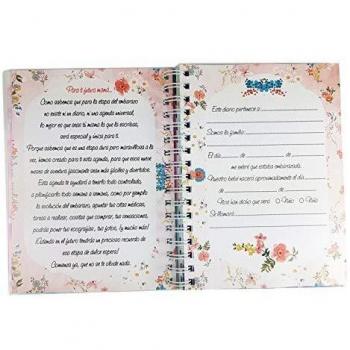 Para ti futura mamá...
Como sabemos que para la etapa del embarazo
no existe ni un diario, ni una agenda universal,
lo mejor es que seas tú misma la que lo escribas,
será especial y única para ti.
Porque sabemos que es una etapa dura pero maravillosa a la
vez, hemos creado para ti esta agenda, para que esos nueve
meses de aventura sencillamente sean más fáciles y divertidos.
Esta agenda te ayudará a tenerlo todo controlado,
a planificarlo todo semana a semana, como por ejemplo
la evolución del embarazo, apuntar tus citas médicas,
tareas a realizar, cositas que comprar, tus sensaciones,
podrás poner tus ecografías, tus fotos, ¡y mucho más!
¡Además en el futuro tendrás un precioso recuerdo de
esa etapa de dulce espera!
Comienza ya, que no se te olvide nada.
Este diario pertenece a
Somos la familia:
El día de de
me enteré que estaba embarazada.
Nuestro bebé nacerá aproximadamente el día
de de
Nos han dicho que será Niño Niña
Se llamará